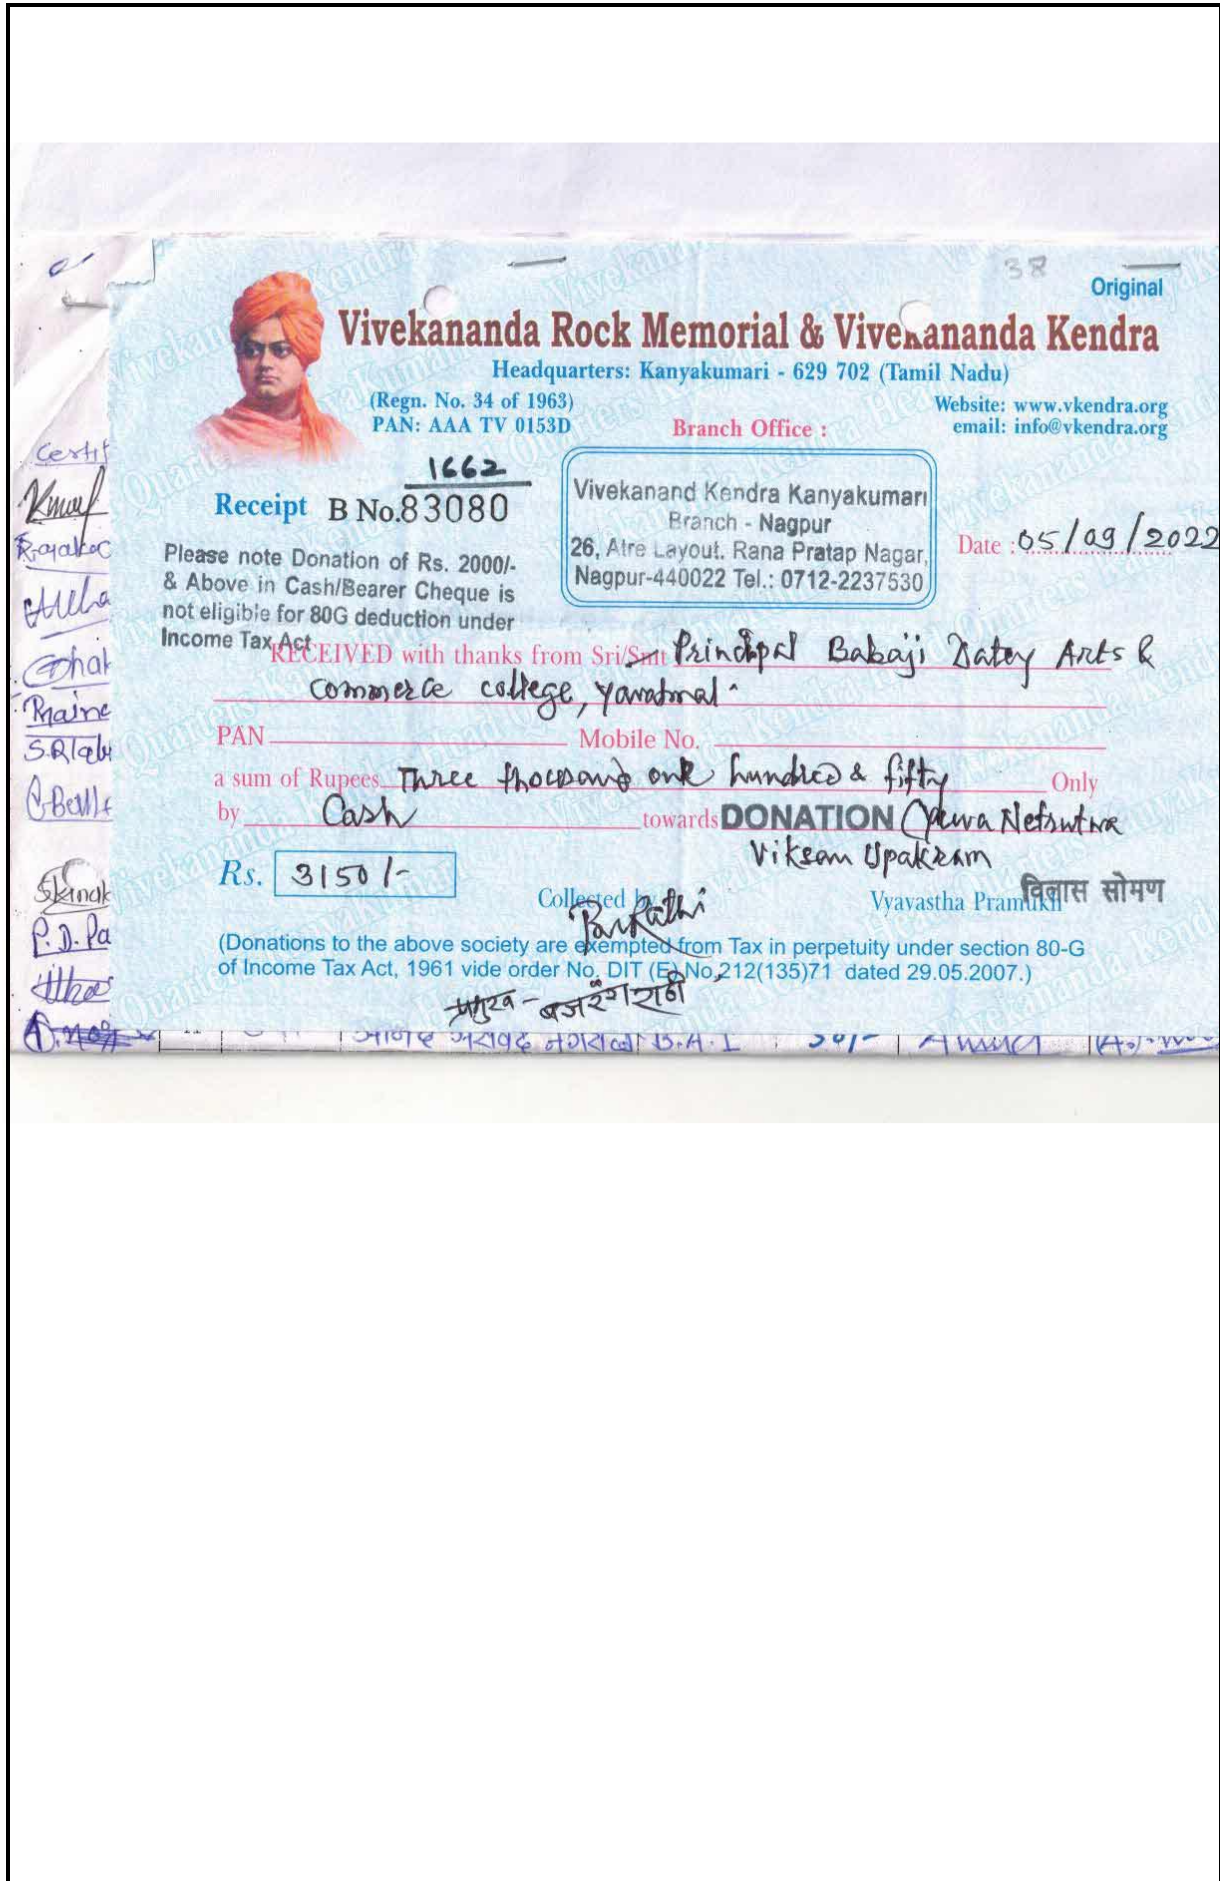 38
Original
Vivekananda Rock Memorial & Vivekananda Kendra
Headquarters: Kanyakumari - 629 702 (Tamil Nadu)
(Regn. No. 34 of 1963)
PAN: AAA TV 0153D
Website: www.vkendra.org
email: info@vkendra.org
Branch Office :
1662
Receipt B No.83080
Vivekanand Kendra Kanyakumari
Branch - Nagpur
26, Atre Layout. Rana Pratap Nagar,
Nagpur-440022 Tel.: 0712-2237530
Date : 05/09/2022
Please note Donation of Rs. 2000/-
& Above in Cash/Bearer Cheque is
not eligible for 80G deduction under
Income Tax Act
RECEIVED with thanks from Sri/Smt Principal Babaji Datey Arts &
Commerce college, Yavatmal
PAN Mobile No.
a sum of Rupees Three thousand one hundred & fifty Only
by Cash towards DONATION Netrutva
Upakram
Rs. 3150/-
Collected by
Vyavastha Pramukh विलास सोमण
(Donations to the above society are exempted from Tax in perpetuity under section 80-G
of Income Tax Act, 1961 vide order No. DIT (E) No,212(135)71 dated 29.05.2007.)
प्रमुख - बजरंग राठी
B.A. I